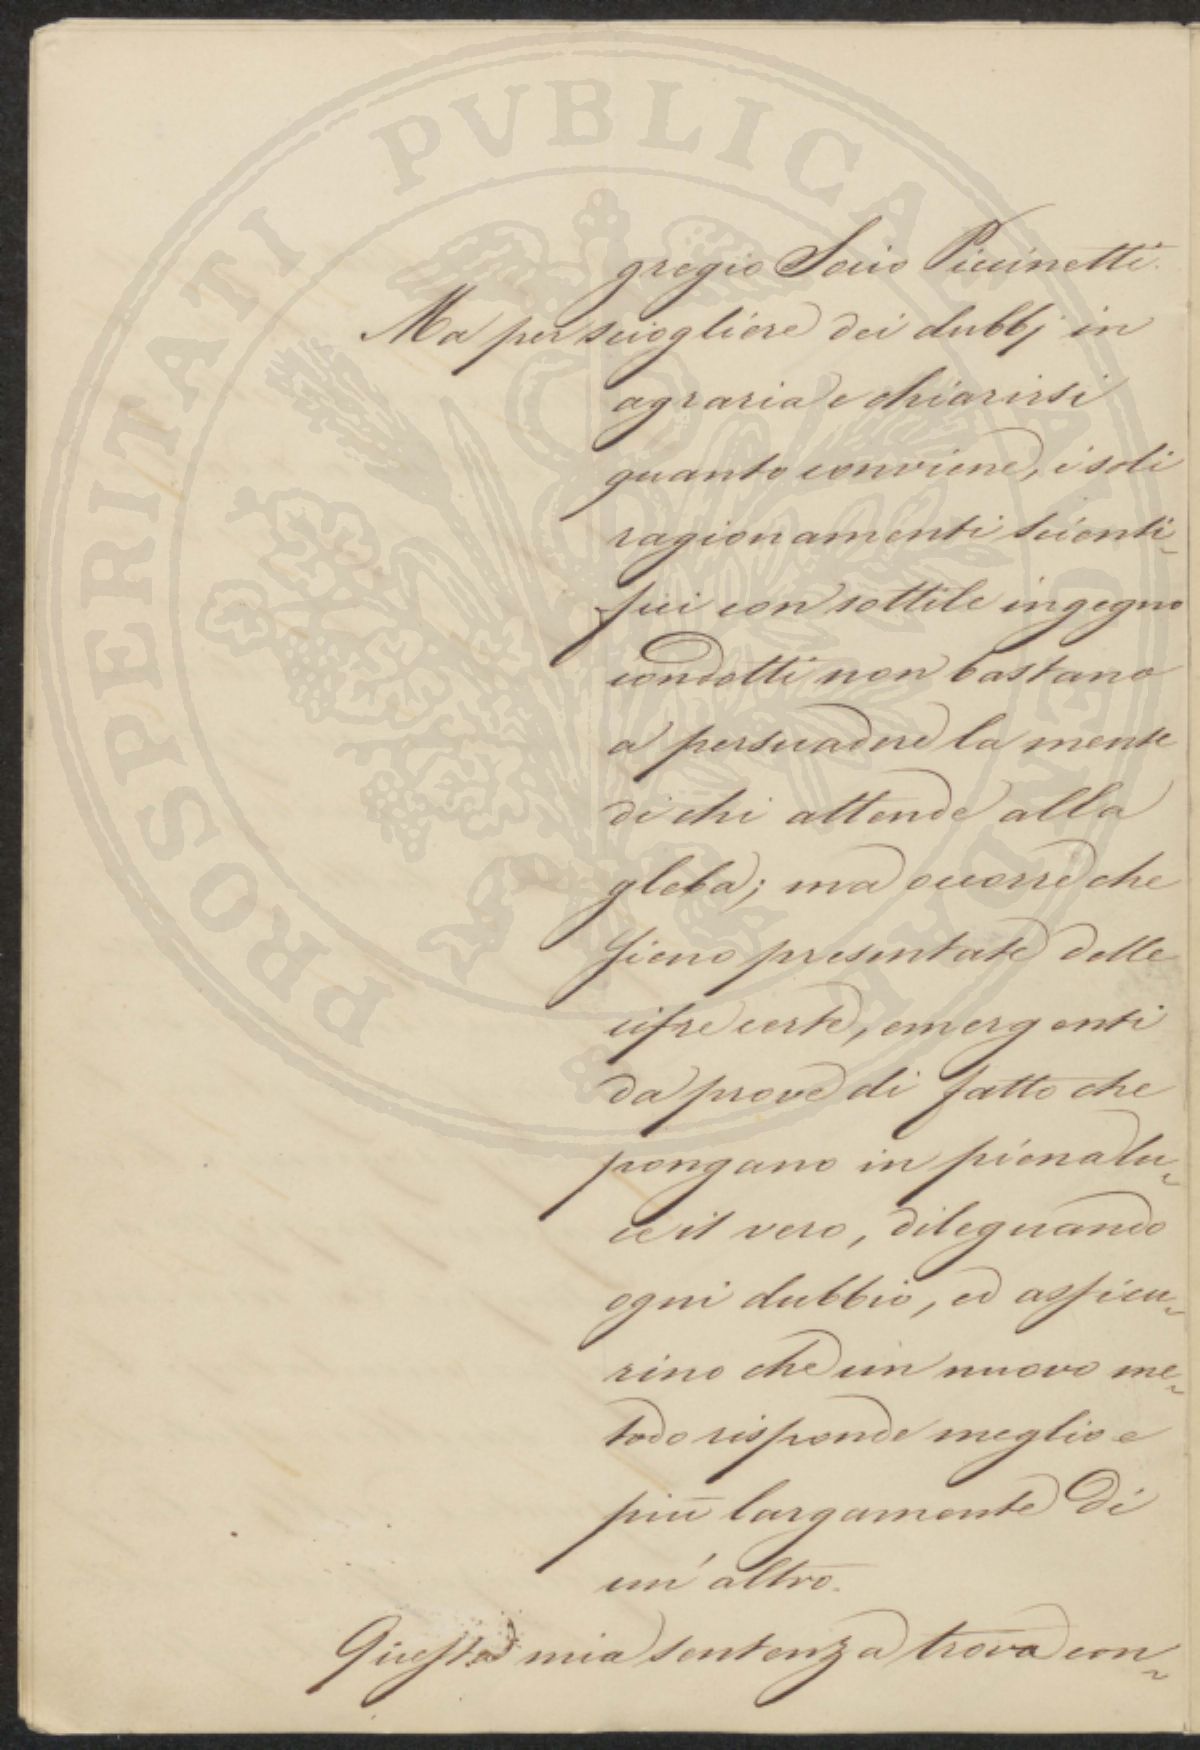 PROSPERITATI PVBLICAE AVGENDAE
gregio Socio Piccinetti.
Ma per sciogliere dei dubbj in
agraria e chiarirsi
quanto conviene, i soli
ragionamenti scienti-
fici con sottile ingegno
condotti non bastano
a persuadere la mente
di chi attende alla
gleba; ma occorre che
sieno presentate delle
cifre certe, emergenti
da prove di fatto che
pongano in piena lu-
ce il vero, dileguando
ogni dubbio, ed assicu-
rino che un nuovo me-
todo risponde meglio e
più largamente di
un'altro.
Questa mia sentenza trova con-